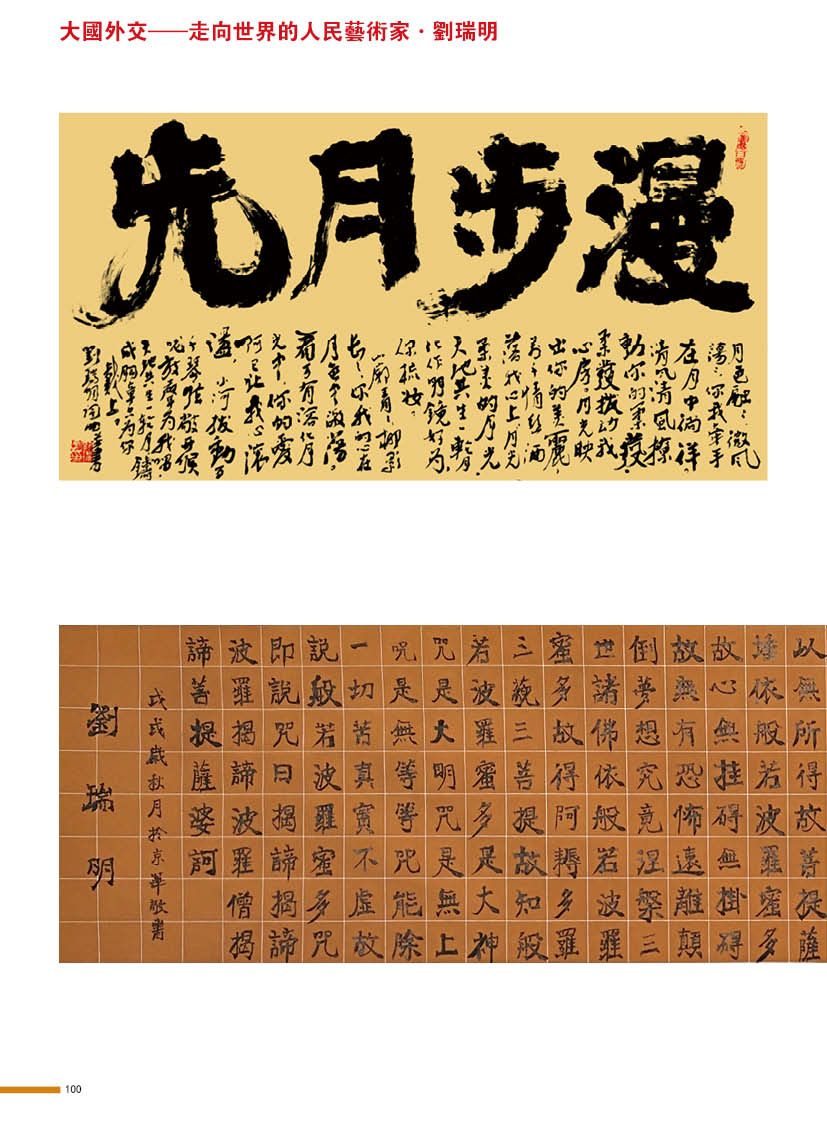 大國外交——走向世界的人民藝術家·劉瑞明
漫步月光
月色融〻微風
蕩〻你我牽手
在月中徜徉
清風清風撩
動你的柔發
柔發撥動我
心房月光映
出你的美麗
萬千情絲洒
落我心上月光
柔美的月光
天地共生一輪月
化作明鏡好為
你梳妝
長〻你我的心在
月色中激蕩
看萬有溶化月
光中你的愛
阿已讓我心滚
天地共生一輪月鑄
成胸章只為你
戴上
劉瑞明
以無所得故菩提薩
埵依般若波羅蜜多
故心無挂碍無掛碍
故無有恐怖遠離顛
倒夢想究竟涅槃三
世諸佛依般若波羅
蜜多故得阿耨多羅
三藐三菩提故知般
若波羅蜜多是大神
咒是大明咒是無上
咒是無等等咒能除
一切苦真實不虛故
説般若波羅蜜多咒
即説咒曰揭諦揭諦
波羅揭諦波羅僧揭
諦菩提薩婆訶
戊戌歲秋月於京華敬書
劉瑞明
100